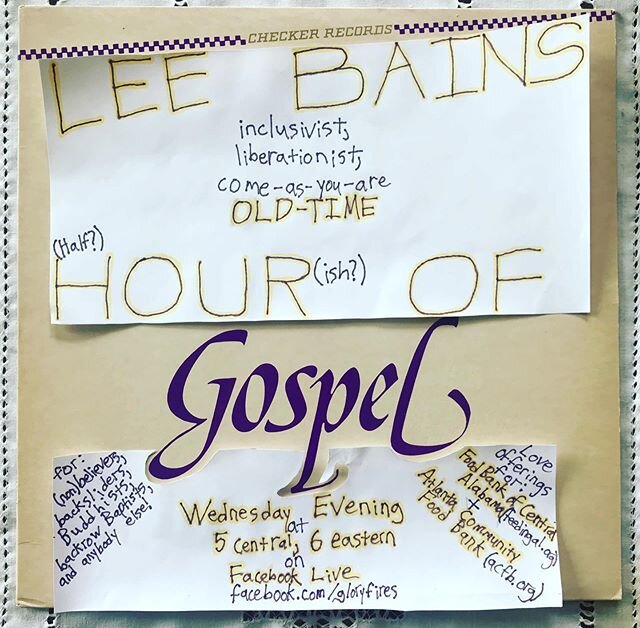 CHECKER RECORDS
LEE BAINS
inclusivist,
liberationist,
come-as-you-are
OLD-TIME
(Half?)
HOUR (ish?) OF
Gospel
for:
(non)believers,
backsliders,
Buddhists,
backrow Baptists,
and anybody
else!
Wednesday Evening
at
5 central, 6 eastern
on
Facebook Live
facebook.com/gloryfires
Love
offerings
for:
Food Bank of Central
Alabama (feedingal.org)
+
Atlanta Community
Food Bank (acfb.org)